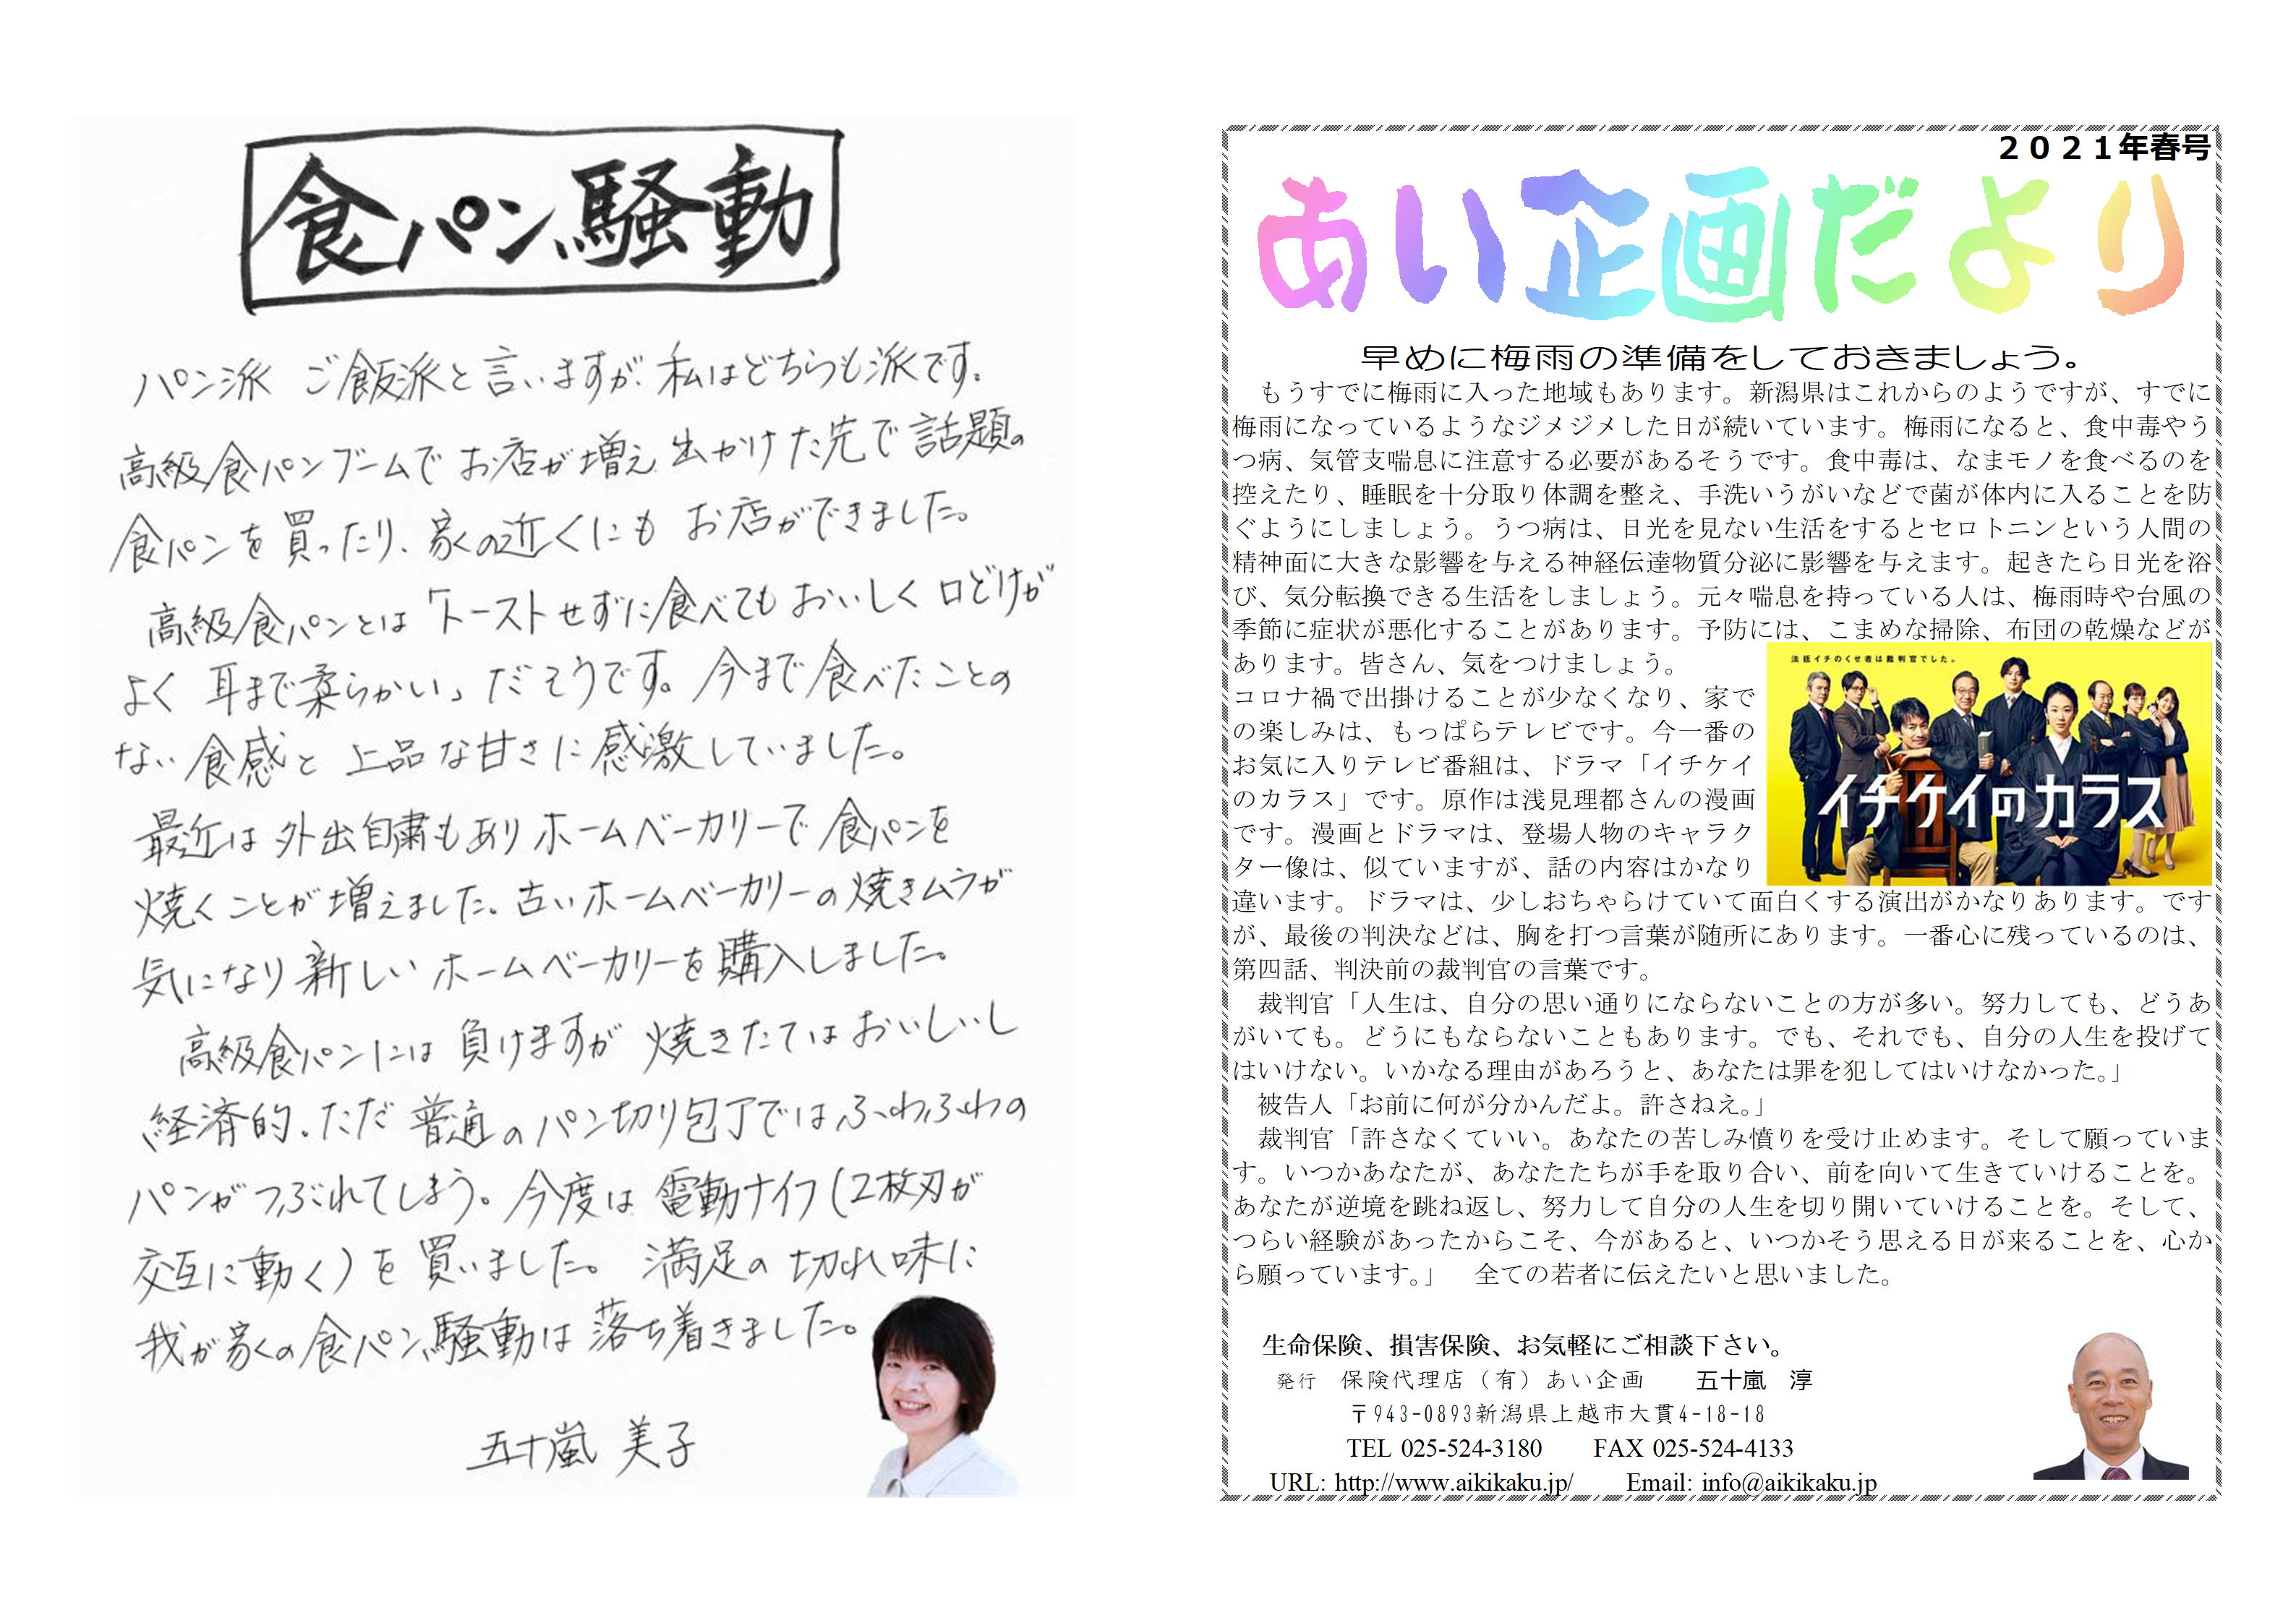 食パン騒動
パン派 ご飯派と言いますが、私はどちらも派です。
高級食パンブームでお店が増え、出かけた先で話題の
食パンを買ったり、家の近くにもお店ができました。
高級食パンとは「トーストせずに食べてもおいしく口どけが
よく 耳まで柔らかい」だそうです。今まで食べたことの
ない食感と上品な甘さに感激していました。
最近は外出自粛もありホームベーカリーで食パンを
焼くことが増えました。古いホームベーカリーの焼きムラが
気になり新しいホームベーカリーを購入しました。
高級食パンには負けますが焼きたてはおいしいし
経済的。ただ普通のパン切り包丁ではふわふわの
パンがつぶれてしまう。今度は電動ナイフ(2枚刃が
交互に動く)を買いました。満足の切れ味に
我が家の食パン騒動は落ち着きました。
五十嵐 美子
2021年春号
あい企画だより
早めに梅雨の準備をしておきましょう。
もうすでに梅雨に入った地域もあります。新潟県はこれからのようですが、すでに
梅雨になっているようなジメジメした日が続いています。梅雨になると、食中毒やう
つ病、気管支喘息に注意する必要があるそうです。食中毒は、なまモノを食べるのを
控えたり、睡眠を十分取り体調を整え、手洗いうがいなどで菌が体内に入ることを防
ぐようにしましょう。うつ病は、日光を見ない生活をするとセロトニンという人間の
精神面に大きな影響を与える神経伝達物質分泌に影響を与えます。起きたら日光を浴
び、気分転換できる生活をしましょう。元々喘息を持っている人は、梅雨時や台風の
季節に症状が悪化することがあります。予防には、こまめな掃除、布団の乾燥などが
あります。皆さん、気をつけましょう。
法廷イチのくせ者は裁判官でした。
イチケイのカラス
コロナ禍で出掛けることが少なくなり、家で
の楽しみは、もっぱらテレビです。今一番の
お気に入りテレビ番組は、ドラマ「イチケイ
のカラス」です。原作は浅見理都さんの漫画
です。漫画とドラマは、登場人物のキャラク
ター像は、似ていますが、話の内容はかなり
違います。ドラマは、少しおちゃらけていて面白くする演出がかなりあります。です
が、最後の判決などは、胸を打つ言葉が随所にあります。一番心に残っているのは、
第四話、判決前の裁判官の言葉です。
裁判官「人生は、自分の思い通りにならないことの方が多い。努力しても、どうあ
がいても。どうにもならないこともあります。でも、それでも、自分の人生を投げて
はいけない。いかなる理由があろうと、あなたは罪を犯してはいけなかった。」
被告人「お前に何が分かんだよ。許さねえ。」
裁判官「許さなくていい。あなたの苦しみ憤りを受け止めます。そして願っていま
す。いつかあなたが、あなたたちが手を取り合い、前を向いて生きていけることを。
あなたが逆境を跳ね返し、努力して自分の人生を切り開いていけることを。そして、
つらい経験があったからこそ、今があると、いつかそう思える日が来ることを、心か
ら願っています。」 全ての若者に伝えたいと思いました。
生命保険、損害保険、お気軽にご相談下さい。
発行 保険代理店(有)あい企画 五十嵐 淳
〒943-0893新潟県上越市大貫4-18-18
TEL 025-524-3180 FAX 025-524-4133
URL: http://www.aikikaku.jp/ Email: info@aikikaku.jp